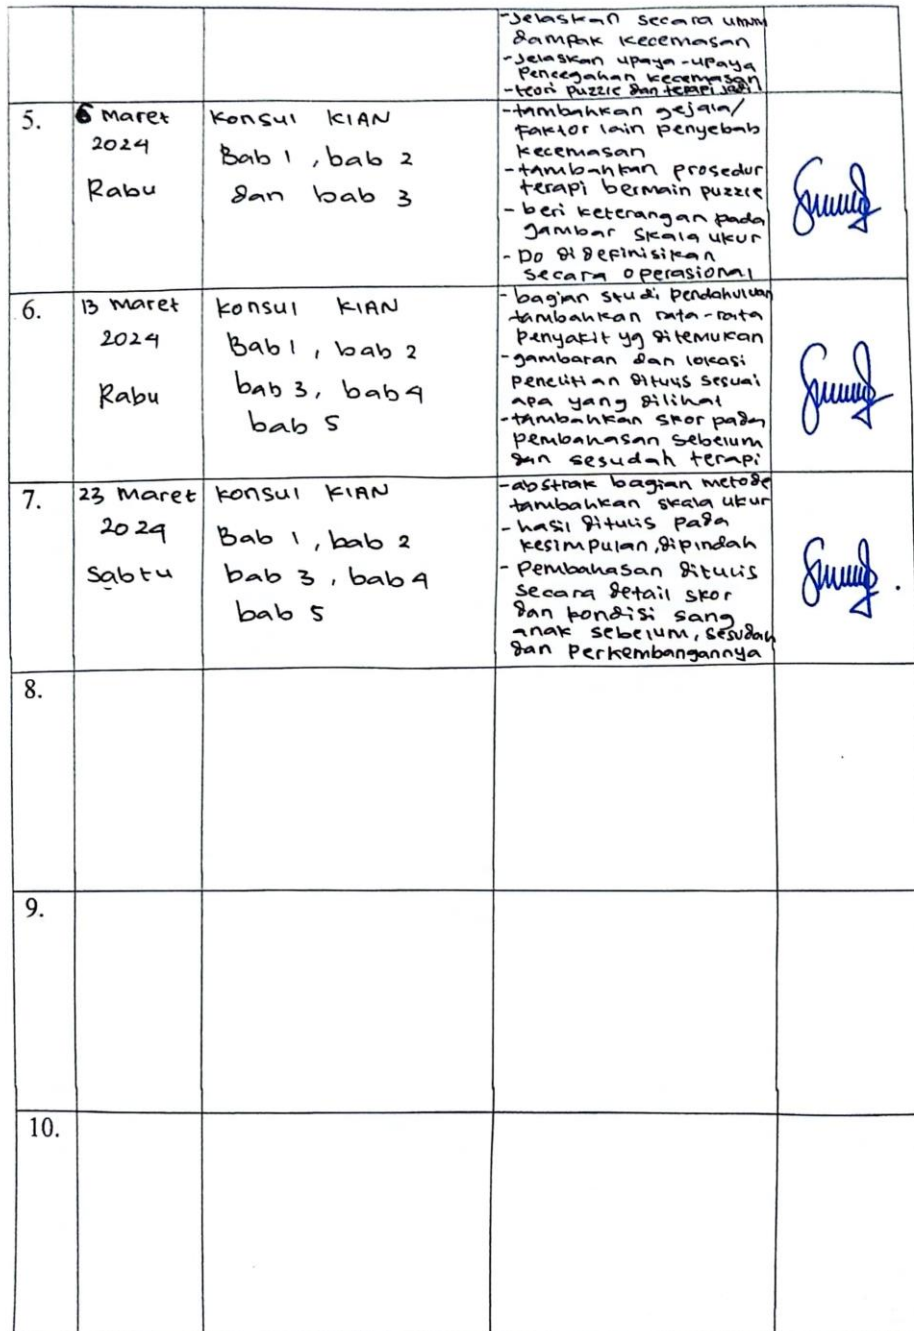 -Jelaskan secara umum
dampak kecemasan
-Jelaskan upaya-upaya
Pencegahan kecemasan
-teori puzzle dan terapi jadi
5.
6 Maret
2024
Rabu
Konsul KIAN
Bab 1, bab 2
dan bab 3
-tambahkan gejala/
faktor lain penyebab
kecemasan
-tambahkan prosedur
terapi bermain puzzle
- beri keterangan pada
gambar skala ukur
- Do di definisikan
secara operasional
6.
13 Maret
2024
Rabu
Konsul KIAN
Bab 1, bab 2
bab 3, bab 4
bab 5
- bagian studi pendahuluan
tambahkan rata-rata
penyakit yg ditemukan
-gambaran dan lokasi
penelitian ditulis sesuai
apa yang dilihat
-tambahkan skor pada
pembahasan sebelum
dan sesudah terapi
7.
23 Maret
2024
Sabtu
Konsul KIAN
Bab 1, bab 2
bab 3, bab 4
bab 5
-abstrak bagian metode
tambahkan skala ukur
- hasil ditulis pada
kesimpulan, dipindah
- Pembahasan ditulis
secara detail skor
dan kondisi sang
anak sebelum, sesudah
dan Perkembangannya
8.
9.
10.